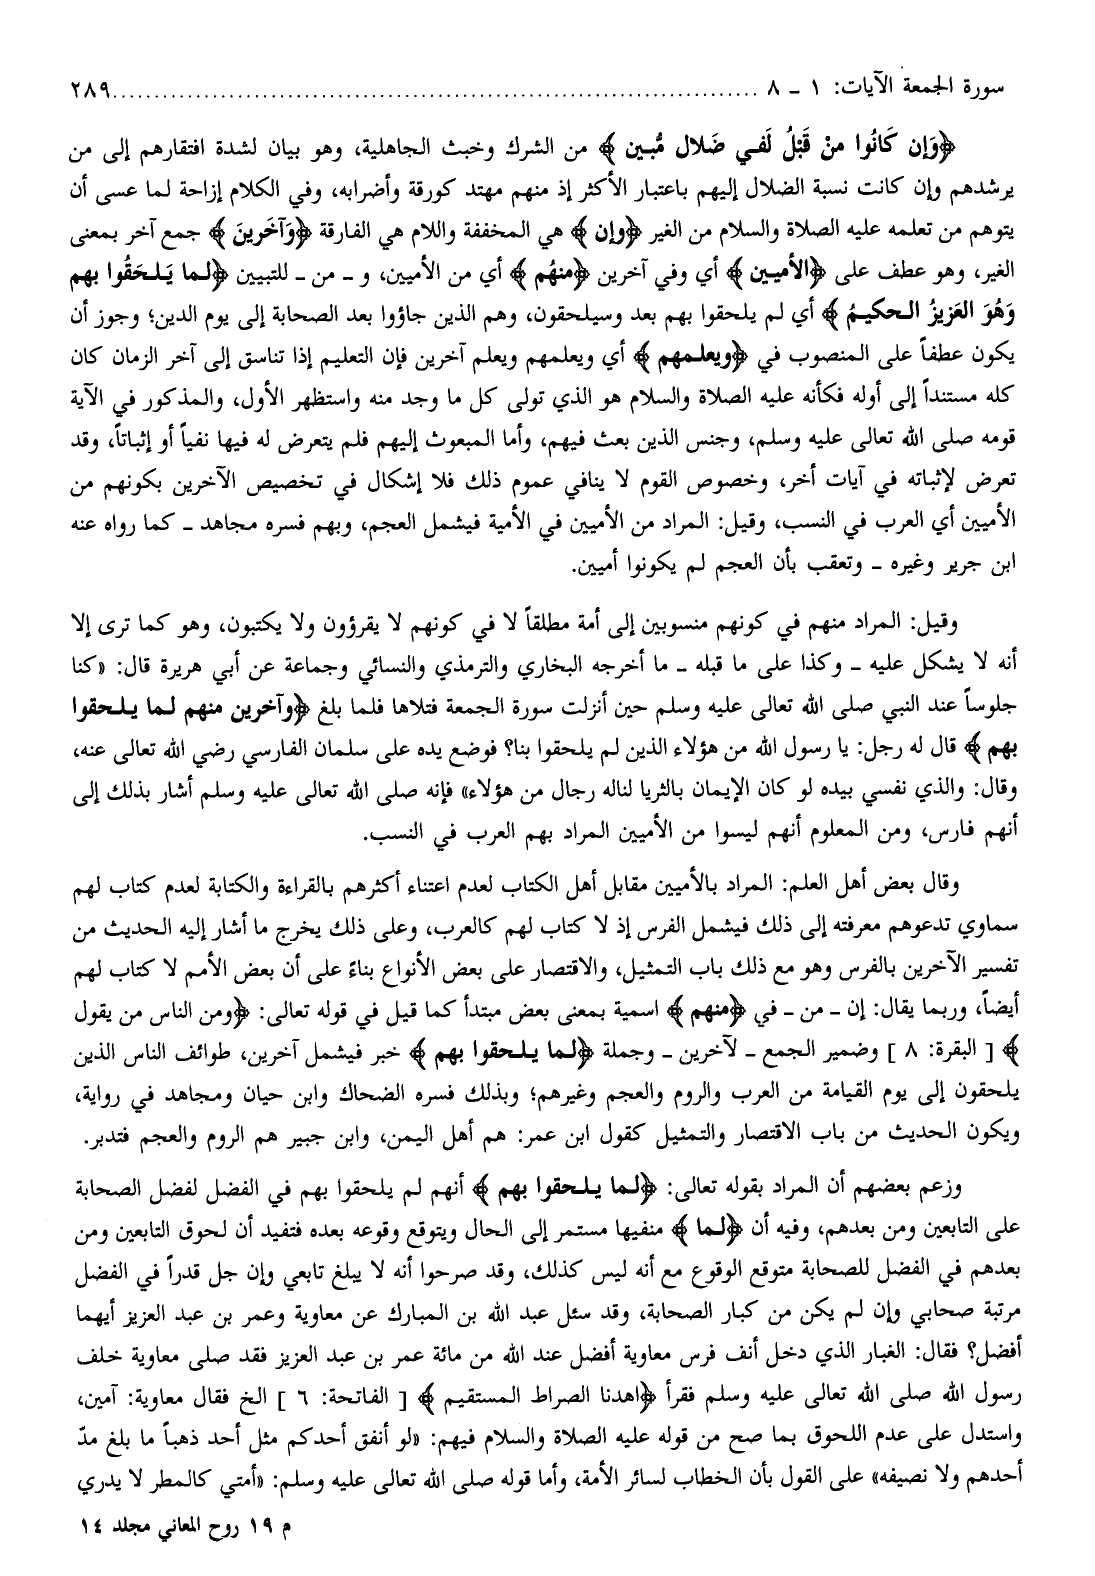 سورة الجمعة الآيات: ١ - ٨ ............................................................ ٢٨٩
﴿وَإِن كَانُوا مِنْ قَبْلُ لَفي ضَلال مُّبين﴾ من الشرك وخبث الجاهلية، وهو بيان لشدة افتقارهم إلى من
يرشدهم وإن كانت نسبة الضلال إليهم باعتبار الأكثر إذ منهم مهتد كورقة وأضرابه، وفي الكلام إزاحة لما عسى أن
يتوهم من تعلمه عليه الصلاة والسلام من الغير ﴿وإن﴾ هي المخففة واللام هي الفارقة ﴿وَآخَرينَ﴾ جمع آخر بمعنى
الغير، وهو عطف على ﴿الأميين﴾ أي وفي آخرين ﴿منهُم﴾ أي من الأميين، و - من - للتبيين ﴿لما يَلحَقُوا بهم
وَهُوَ العَزيزُ الحكيمُ﴾ أي لم يلحقوا بهم بعد وسيلحقون، وهم الذين جاؤوا بعد الصحابة إلى يوم الدين؛ وجوز أن
يكون عطفاً على المنصوب في ﴿ويعلمهم﴾ أي ويعلمهم ويعلم آخرين فإن التعليم إذا تناسق إلى آخر الزمان كان
كله مستنداً إلى أوله فكأنه عليه الصلاة والسلام هو الذي تولى كل ما وجد منه واستظهر الأول، والمذكور في الآية
قومه صلى الله تعالى عليه وسلم، وجنس الذين بعث فيهم، وأما المبعوث إليهم فلم يتعرض له فيها نفياً أو إثباتاً، وقد
تعرض لإثباته في آيات أخر، وخصوص القوم لا ينافي عموم ذلك فلا إشكال في تخصيص الآخرين بكونهم من
الأميين أي العرب في النسب، وقيل: المراد من الأميين في الأمية فيشمل العجم، وبهم فسره مجاهد - كما رواه عنه
ابن جرير وغيره - وتعقب بأن العجم لم يكونوا أميين.
وقيل: المراد منهم في كونهم منسوبين إلى أمة مطلقاً لا في كونهم لا يقرؤون ولا يكتبون، وهو كما ترى إلا
أنه لا يشكل عليه - وكذا على ما قبله - ما أخرجه البخاري والترمذي والنسائي وجماعة عن أبي هريرة قال: «كنا
جلوساً عند النبي صلى الله تعالى عليه وسلم حين أنزلت سورة الجمعة فتلاها فلما بلغ ﴿وآخرين منهم لما يلحقوا
بهم﴾ قال له رجل: يا رسول الله من هؤلاء الذين لم يلحقوا بنا؟ فوضع يده على سلمان الفارسي رضي الله تعالى عنه،
وقال: والذي نفسي بيده لو كان الإيمان بالثريا لناله رجال من هؤلاء» فإنه صلى الله تعالى عليه وسلم أشار بذلك إلى
أنهم فارس، ومن المعلوم أنهم ليسوا من الأميين المراد بهم العرب في النسب.
وقال بعض أهل العلم: المراد بالأميين مقابل أهل الكتاب لعدم اعتناء أكثرهم بالقراءة والكتابة لعدم كتاب لهم
سماوي تدعوهم معرفته إلى ذلك فيشمل الفرس إذ لا كتاب لهم كالعرب، وعلى ذلك يخرج ما أشار إليه الحديث من
تفسير الآخرين بالفرس وهو مع ذلك باب التمثيل، والاقتصار على بعض الأنواع بناءً على أن بعض الأمم لا كتاب لهم
أيضاً، وربما يقال: إن - من - في ﴿منهم﴾ اسمية بمعنى بعض مبتدأ كما قيل في قوله تعالى: ﴿ومن الناس من يقول
﴾ [ البقرة: ٨ ] وضمير الجمع - لآخرين - وجملة ﴿لما يلحقوا بهم﴾ خبر فيشمل آخرين، طوائف الناس الذين
يلحقون إلى يوم القيامة من العرب والروم والعجم وغيرهم؛ وبذلك فسره الضحاك وابن حيان ومجاهد في رواية،
ويكون الحديث من باب الاقتصار والتمثيل كقول ابن عمر: هم أهل اليمن، وابن جبير هم الروم والعجم فتدبر.
وزعم بعضهم أن المراد بقوله تعالى: ﴿لما يلحقوا بهم﴾ أنهم لم يلحقوا بهم في الفضل لفضل الصحابة
على التابعين ومن بعدهم، وفيه أن ﴿لما﴾ منفيها مستمر إلى الحال ويتوقع وقوعه بعده فتفيد أن لحوق التابعين ومن
بعدهم في الفضل للصحابة متوقع الوقوع مع أنه ليس كذلك، وقد صرحوا أنه لا يبلغ تابعي وإن جل قدراً في الفضل
مرتبة صحابي وإن لم يكن من كبار الصحابة، وقد سئل عبد الله بن المبارك عن معاوية وعمر بن عبد العزيز أيهما
أفضل؟ فقال: الغبار الذي دخل أنف فرس معاوية أفضل عند الله من مائة عمر بن عبد العزيز فقد صلى معاوية خلف
رسول الله صلى الله تعالى عليه وسلم فقرأ ﴿اهدنا الصراط المستقيم﴾ [ الفاتحة: ٦ ] الخ فقال معاوية: آمين،
واستدل على عدم اللحوق بما صح من قوله عليه الصلاة والسلام فيهم: «لو أنفق أحدكم مثل أحد ذهباً ما بلغ مدّ
أحدهم ولا نصيفه» على القول بأن الخطاب لسائر الأمة، وأما قوله صلى الله تعالى عليه وسلم: «أمتي كالمطر لا يدري
م ١٩ روح المعاني مجلد ١٤